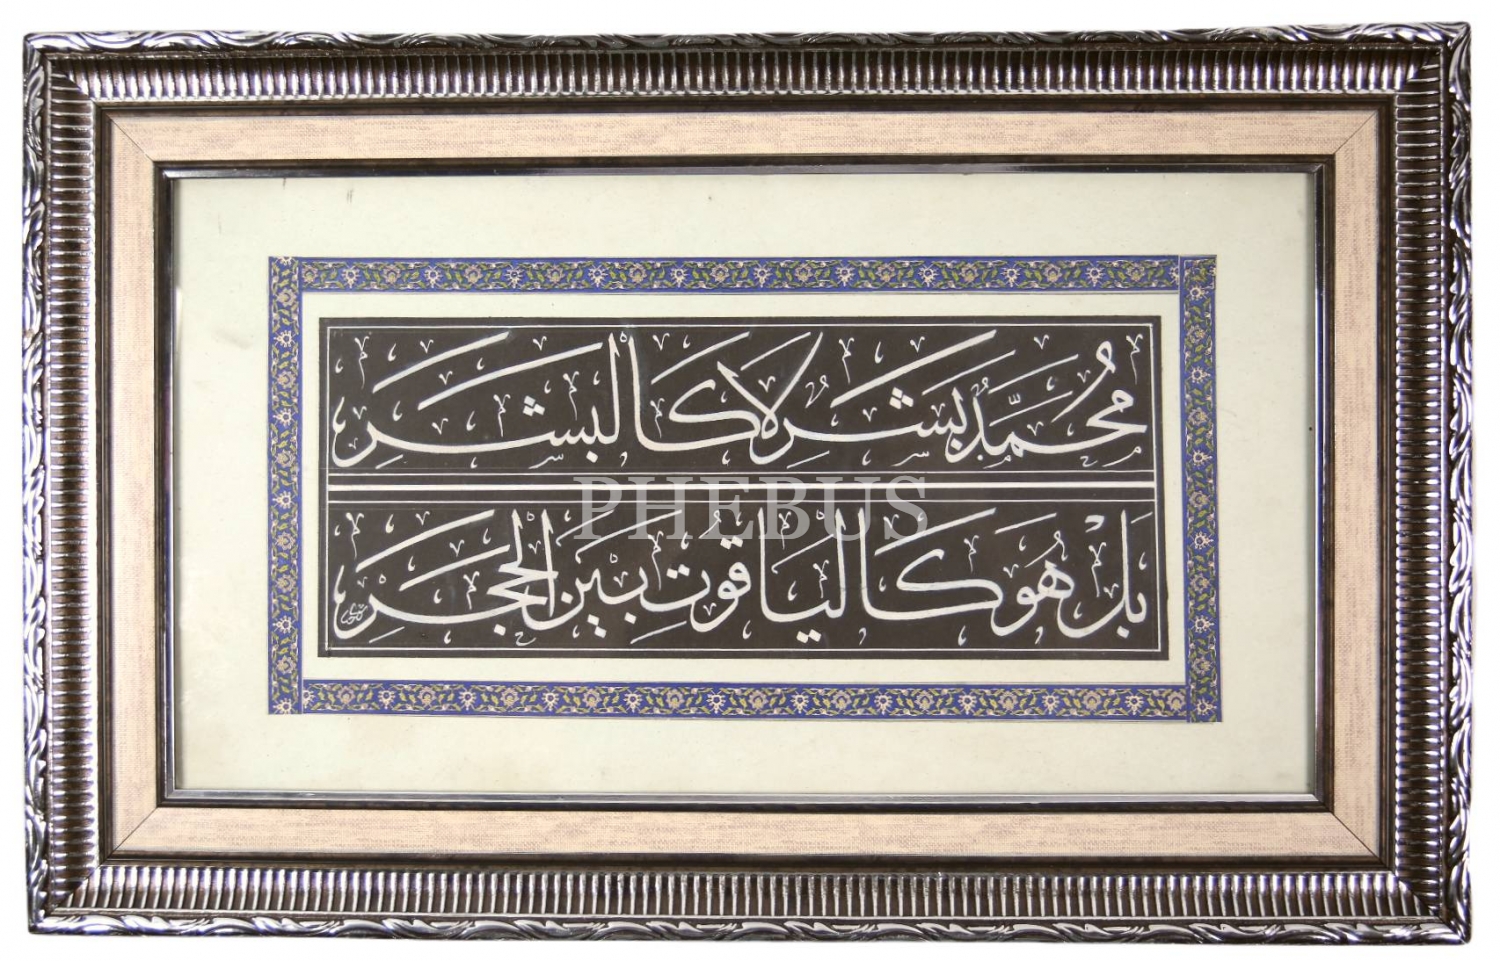 محمد بشر لا كالبشر
PHEBUS
بل هو كالياقوت بين الحجر